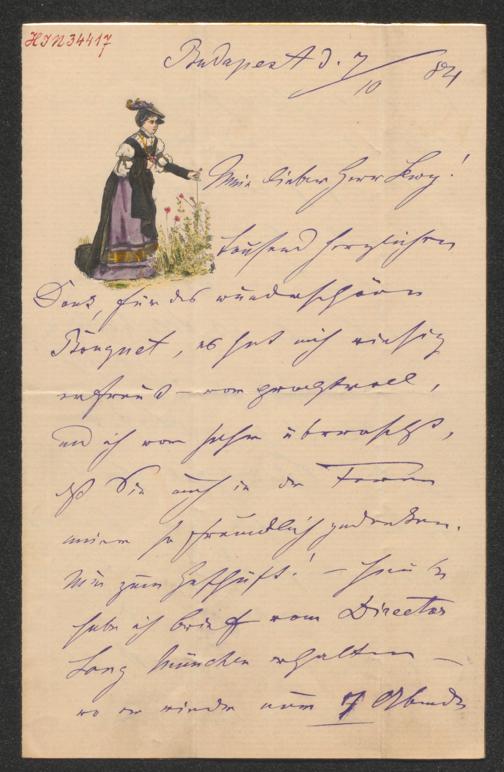 HIN 34417
Budapest d. 7/10 84
Mein lieber Herr Levy!
Tausend herzlichen
Dank, für das wunderschöne
Bouquet, es hat mich riesig
erfreut – war prachtvoll,
und ich war sehr überrascht,
daß Sie auch in der Ferne
meiner so freundlich gedenken.
Nun zum Geschäft! –
habe ich Brief vom Director
Lang München erhalten –
wo er wieder nur 7 Abende